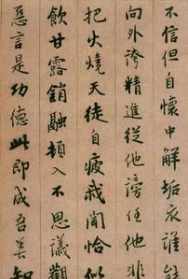 不信但自懷中解垢衣誰能
向外誇精進從他謗任他非
把火燒天徒自疲我聞恰似
飲甘露銷融頓入不思議觀
惡言是功德此即成吾善知